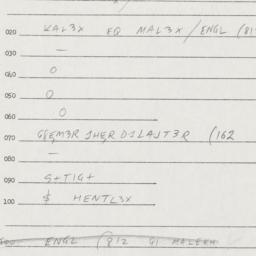 020 KAL3X EQ MAL3X / ENGL (81
030 —
040 O
050 O
060 O
070 G8EM3R JHER DJLAJT3R (162
080 —
090 S+TIG+
100 $ HENTL3X
ENGL (812 GI MALEKH